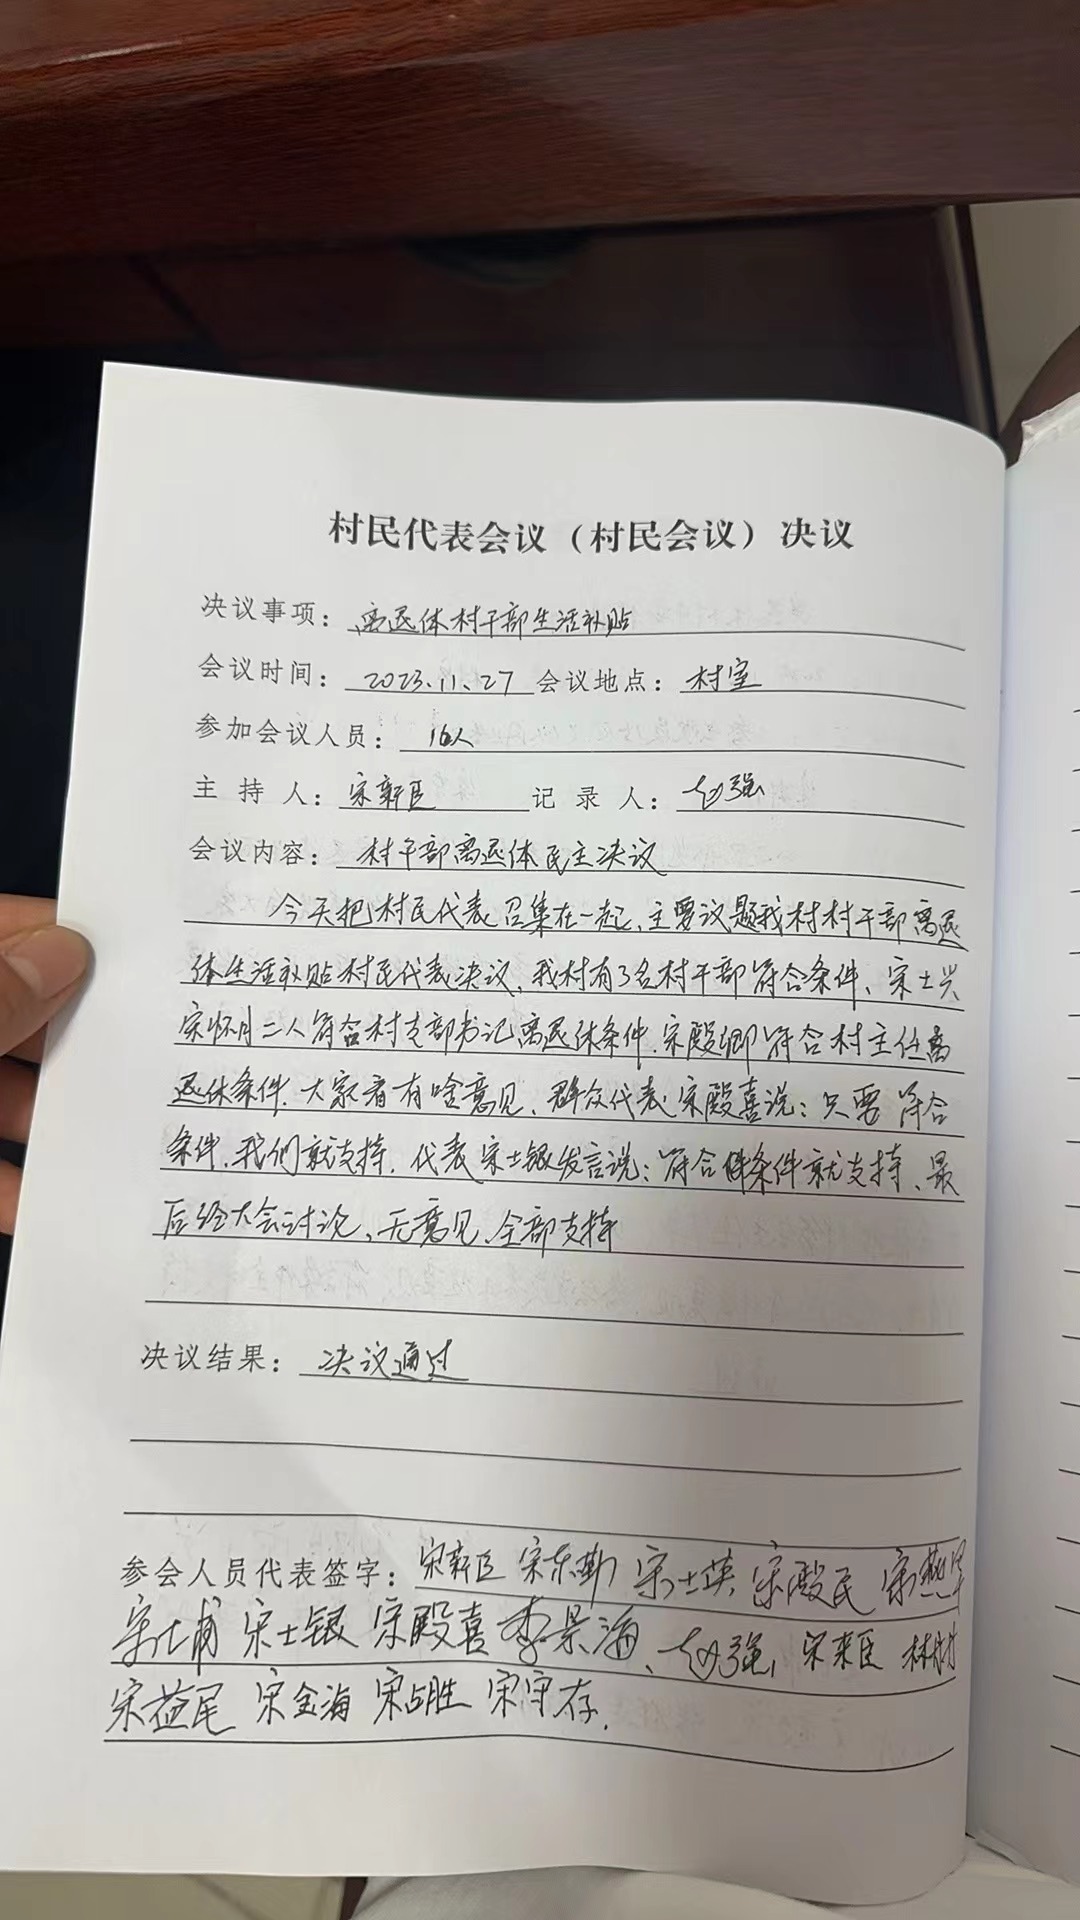 村民代表会议（村民会议）决议
决议事项：离退休村干部生活补贴
会议时间：2023.11.27 会议地点：村室
参加会议人员：16人
主持人：宋新臣 记录人：赵强
会议内容：村干部离退休民主决议
今天把村民代表召集在一起、主要议题我村村干部离退
休生活补贴村民代表决议，我村有3名村干部符合条件、宋士兴
宋怀月二人符合村支部书记离退休条件.宋殿卿符合村主任离
退休条件.大家看有啥意见、群众代表宋殿喜说：只要符合
条件.我们就支持.代表宋士银发言说：符合条件就支持、最
后经大会讨论、无意见、全部支持
决议结果：决议通过
参会人员代表签字：宋新臣 宋东勤 宋士英 宋殿民 宋
宋士甫 宋士银 宋殿喜 李景海、赵强、宋来臣 林
宋益尾 宋金海 宋占胜 宋守存.